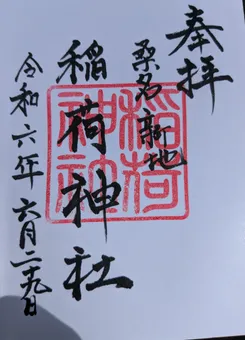 奉拝
桑名新地
稲荷神社
令和六年六月二十九日
稲荷神社